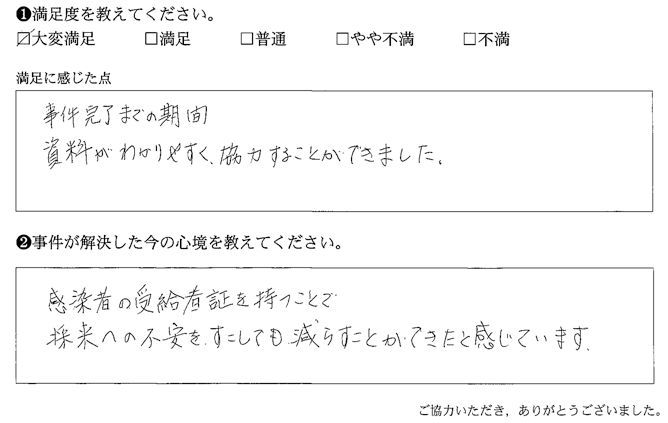 ❶満足度を教えてください。
☑大変満足 □満足 □普通 □やや不満 □不満
満足に感じた点
事件完了までの期間
資料がわかりやすく、協力することができました。
❷事件が解決した今の心境を教えてください。
感染者の受給者証を持つことで
将来への不安を、すこしでも減らすことができたと感じています。
ご協力いただき，ありがとうございました。